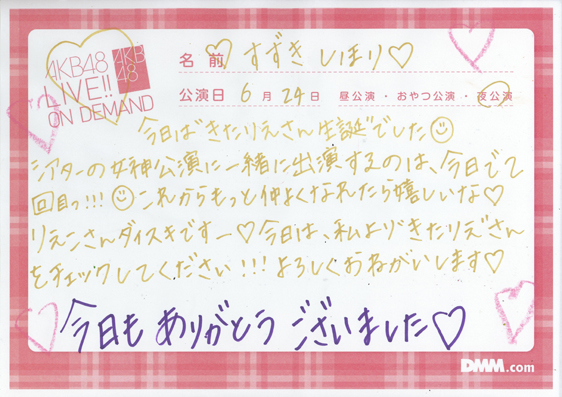 AKB48
LIVE!!
ON DEMAND
AKB
48
名前 ♡すずき しほり♡
公演日 6月24日 昼公演・おやつ公演・夜公演
今日は"きたりえさん生誕"でした☺
シアターの女神公演に一緒に出演するのは、今日で2
回目っ!!!☺これからもっと仲よくなれたら嬉しいな♡
りえこさんダイスキですー♡今日は、私より"きたりえ"さん
をチェックしてください!!!よろしくおねがいします♡
今日も ありがとう ございました♡
DMM.com